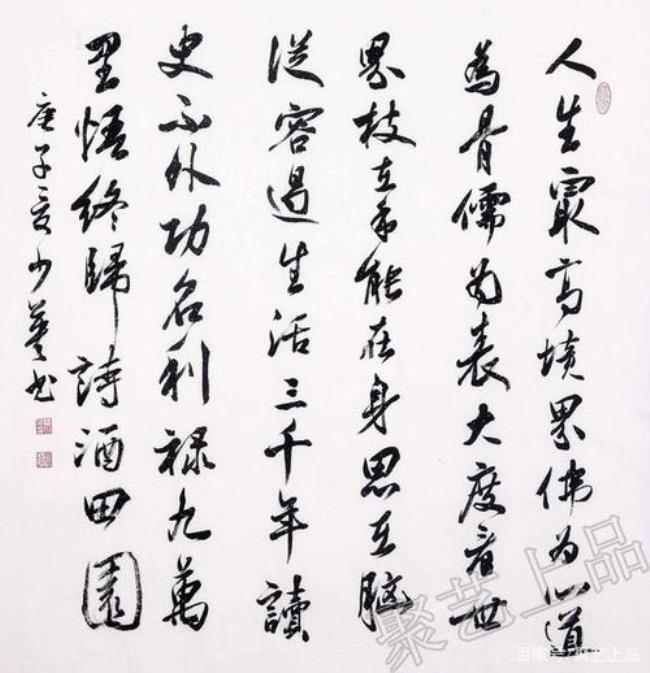 人生最高境界佛为心道
為骨儒为表大度看世
界技在手能在身思在脑
從容過生活三千年讀
史不外功名利禄九萬
里悟終歸詩酒田園
庚子夏少书
聚艺上品
百家号/聚艺上品